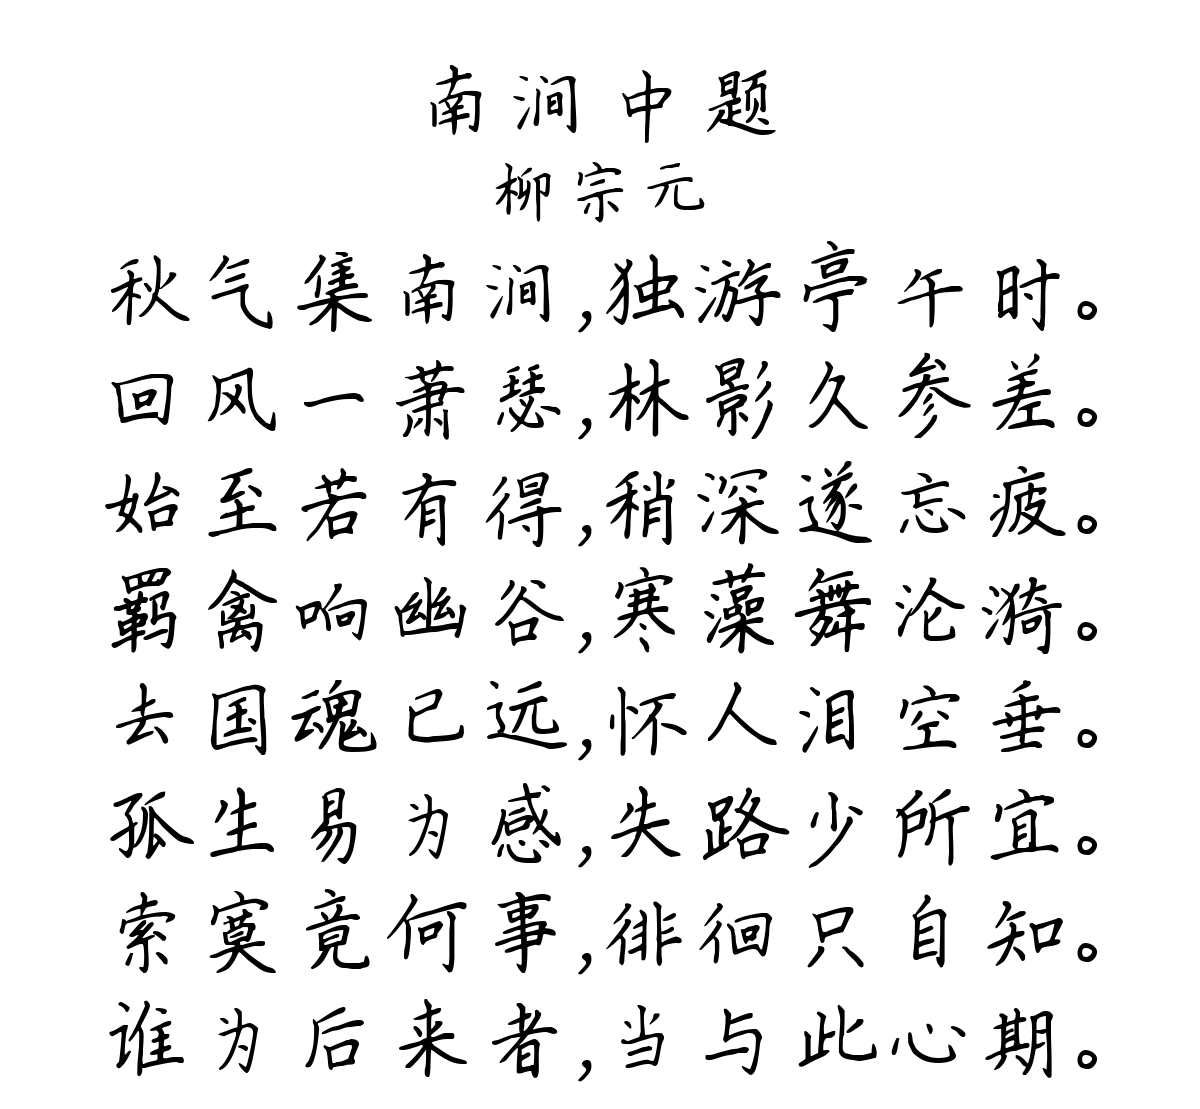 南涧中题
柳宗元
秋气集南涧,独游亭午时。
回风一萧瑟,林影久参差。
始至若有得,稍深遂忘疲。
羁禽响幽谷,寒藻舞沦漪。
去国魂已远,怀人泪空垂。
孤生易为感,失路少所宜。
索寞竟何事,徘徊只自知。
谁为后来者,当与此心期。